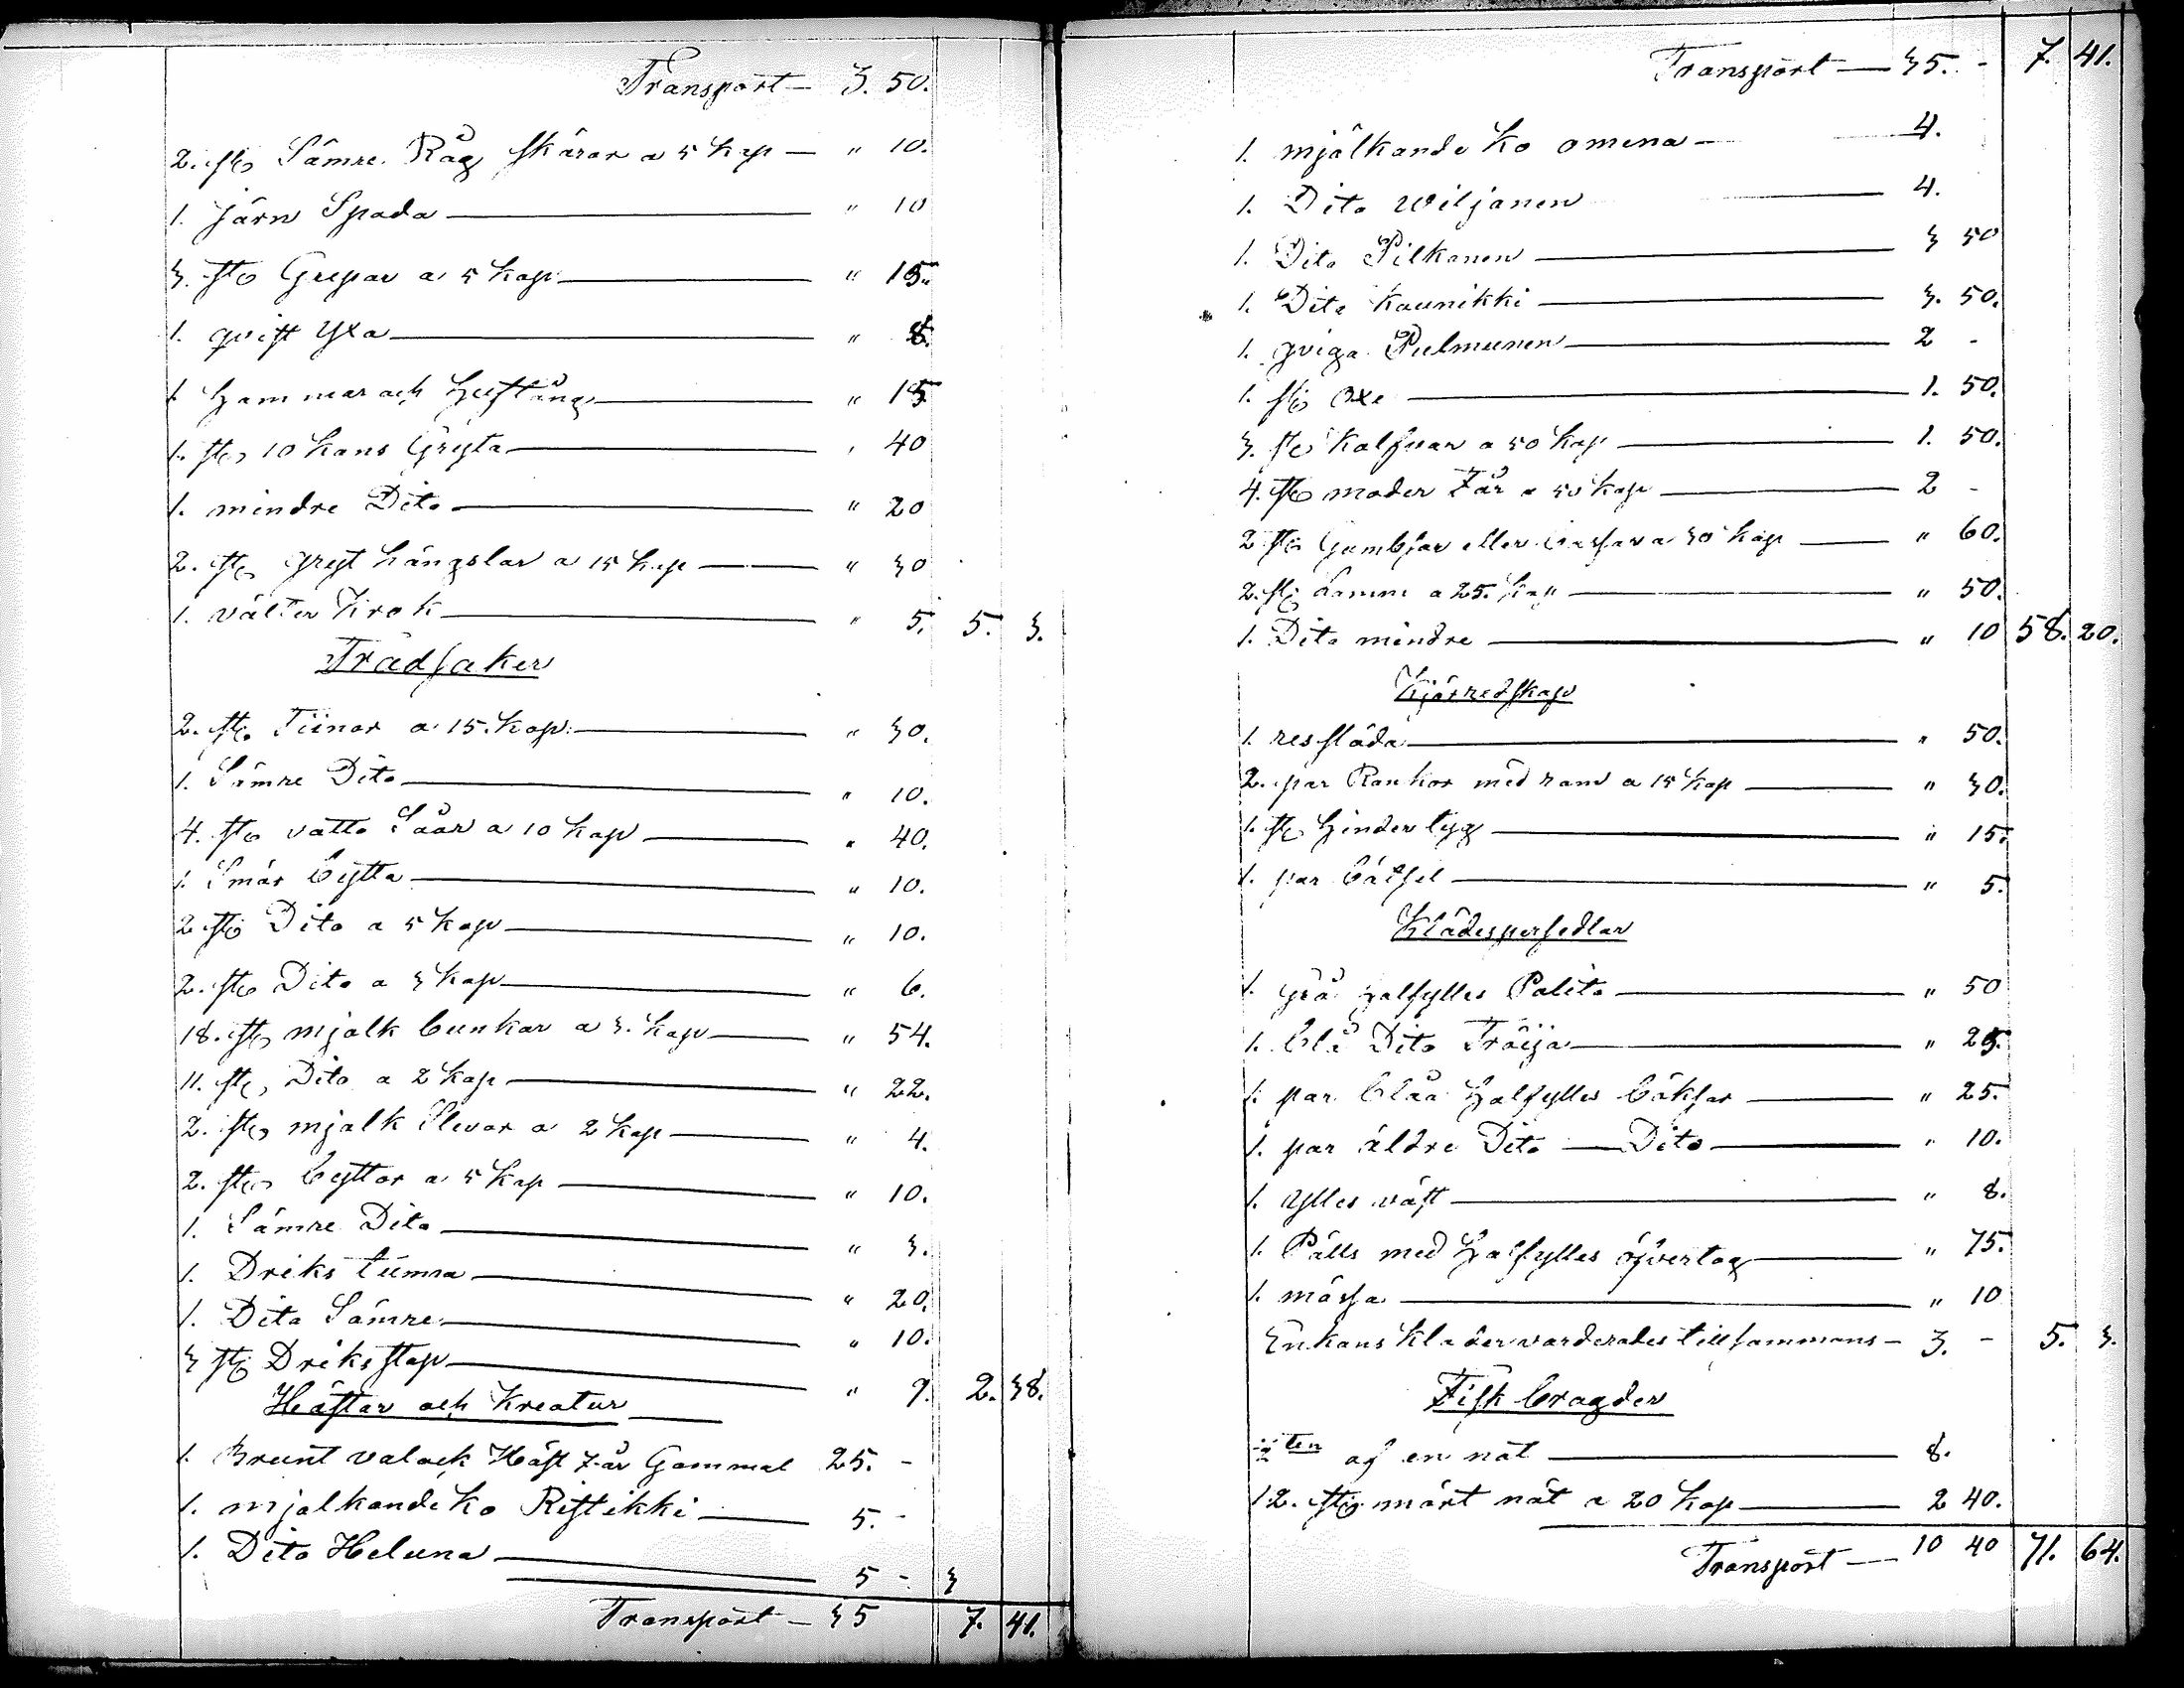 Transport — 3. 50.
2. st. Sämre Råg skäror a 5 Kop — " 10.
1. järn Spada — " 10
3. st. Grepar a 5 Kop — " 15.
1. qvist Yxa — " 8.
1. Hammar och Hoftång — " 15
1. st. 10 Kans Gryta — " 40
1. mindre Dito — " 20
2. st. gryt hängslar a 15 Kop — " 30
1. välter Krok — " 5. 5. 3.
Trädsaker
2. st. Tiinor a 15. Kop. — " 30.
1. Sämre Dito — " 10.
4. st. vatto Såar a 10 Kop — " 40.
1. Smör bytta — " 10.
2. st. Dito a 5 Kop — " 10.
2. st. Dito a 3 Kop — " 6.
18. st. mjolk bunkar a 3. Kop — " 54.
11. st. Dito a 2 Kop — " 22.
2. st. mjolk Slevar a 2 Kop — " 4.
2. st. byttor a 5 Kop — " 10.
1. Sämre Dito — " 3.
1. Driks tunna — " 20.
1. Dito Sämre — " 10.
3 st. Driks stop — " 9. 2. 38.
Hästar och Kreatur
1. Brunt valack Häst 7 år Gammal 25. -
1. mjolkande Ko Ristikki — 5. -
1. Dito Heluna — 5 - 3
Transport — 35 7. 41.
Transport — 35. - 7. 41.
1. mjölkande Ko omena — 4.
1. Dito Wiljanen — 4.
1. Dito Pilkanen — 3 50
1. Dito Kaunikki — 3. 50.
1. qviga Pulmunen — 2 -
1. st. Oxe — 1. 50.
3. st. Kalfvar a 50 Kop — 1. 50.
4. st. moder Får a 50 Kop — 2 -
2 st. Gumbsar eller a 30 Kop — " 60.
2. st. Lamm a 25. Kop — " 50.
1. Dito mindre — " 10 58. 20.
Kjörredskap
1. resslåda — " 50.
2. par Rankor med ram a 15 Kop — " 30.
1. st. Hindertyg — " 15.
1. par bätsel — " 5.
Klädespersedlar
1. grå halfylles Palito — " 50
1. blå Dito Tröija — " 25.
1. par blåa Halfylles böksor — " 25.
1. par äldre Dito — Dito — " 10.
1. ylles väst — " 8.
1. Pälls med Halfylles öfvertag — " 75.
1. mössa — " 10
Enkans Klader varderades tillsammans — 3. - 5. 3.
Fisk bragder
ten af en nöt — 8.
12. st. mört nät a 20 Kop — 2 40.
Transport — 10 40 71. 64.